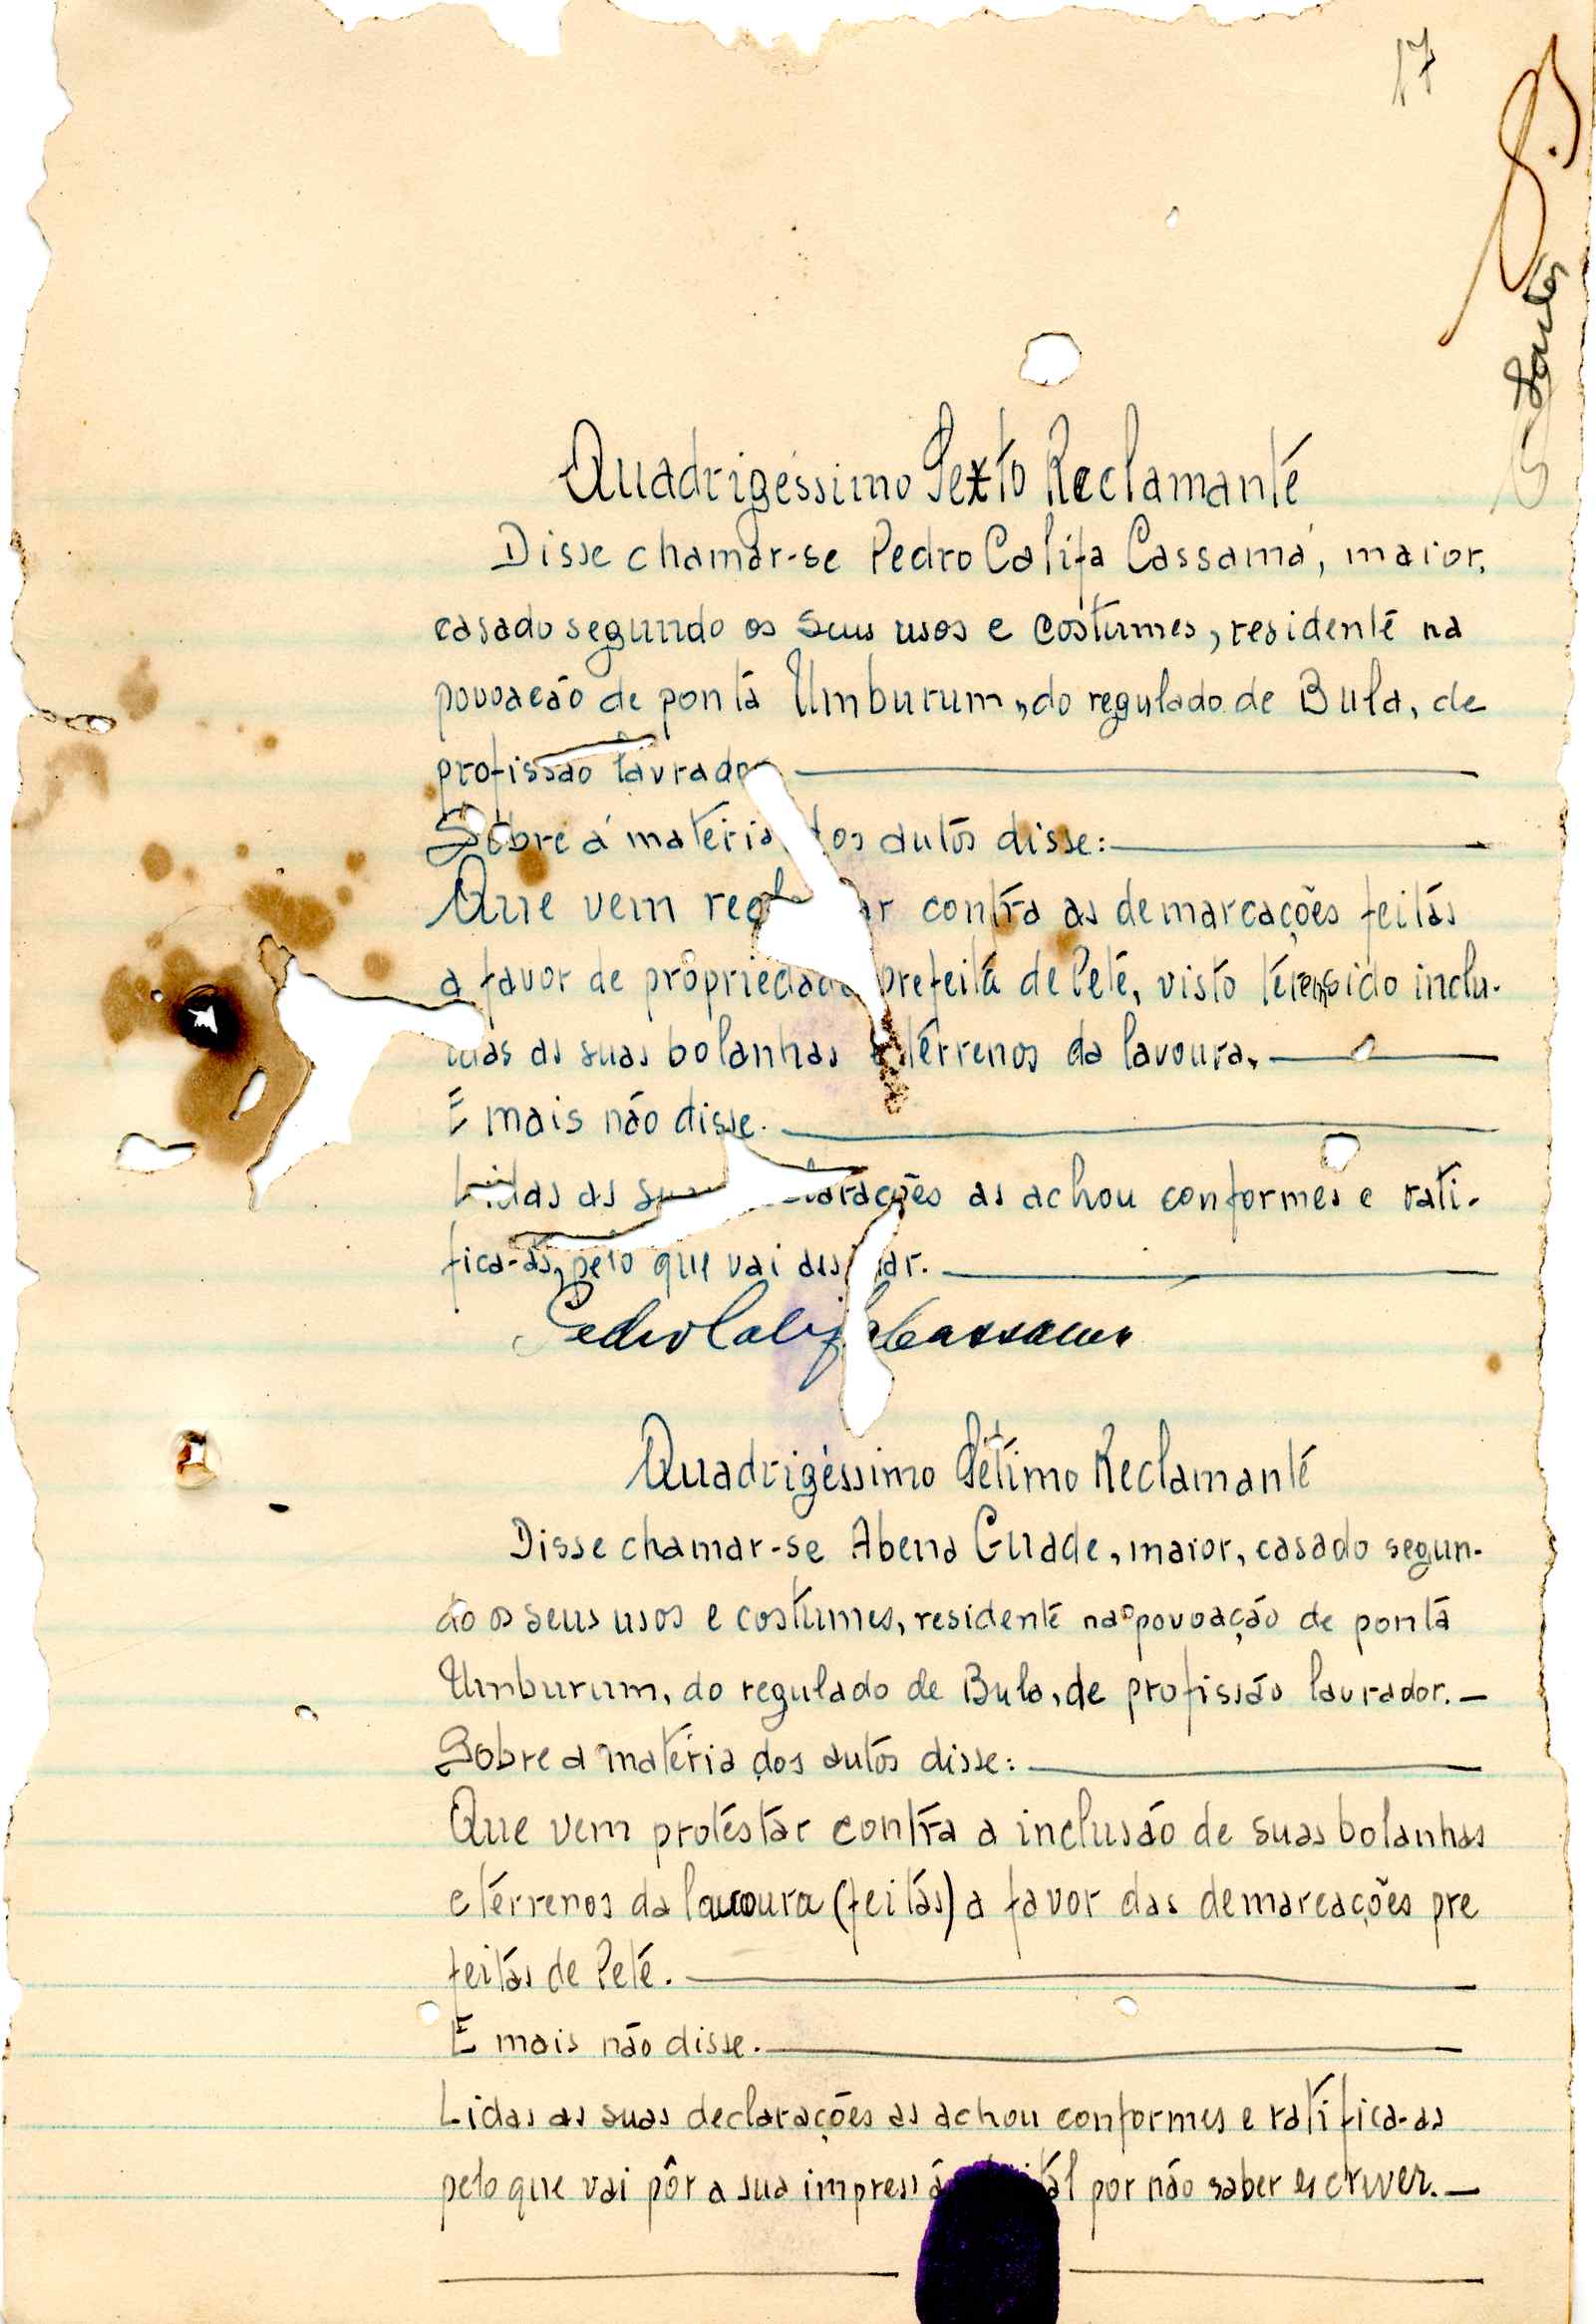 17
Santos
Quadrigéssimo Sexto Reclamante
Disse chamar-se Pedro Califa Cassamá, maior,
casado segundo os seus usos e costumes, residente na
povoacão de ponta Umburum, do regulado de Bula, de
profissão lavrador
Sobre á materia dos autos disse:
Que vem recl ar contra as demarcações feitas
a favor de propriedade prefeita de Peté, visto terem sido inclu-
idas as suas bolanhas e terrenos da lavoura.
E mais não disse.
Lidas as suas declarações as achou conformes e rati-
fica-as, pelo que vai assinar.
Pedro Califa Cassama
Quadrigéssimo Sétimo Reclamante
Disse chamar-se Abena Guade, maior, casado segun-
do os seus usos e costumes, residente na povoação de ponta
Umburum, do regulado de Bula, de profissão lavrador.
Sobre a matéria dos autos disse:
Que vem protestar contra a inclusão de suas bolanhas
e terrenos da lavoura (feitas) a favor das demarcações pre
feitas de Peté.
E mais não disse.
Lidas as suas declarações as achou conformes e ratifica-as
pelo que vai pôr a sua impressão digital por não saber escrever.